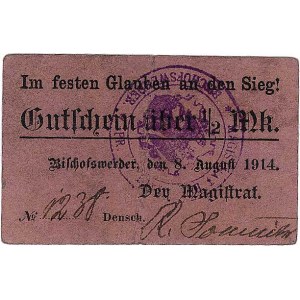 Im festen Glauben an den Sieg!
Gutschein über ½ Mk.
Bischofswerder, den 8. August 1914.
Der Magistrat.
№ 1238 Densch. R.
BISCHOFSWERDER